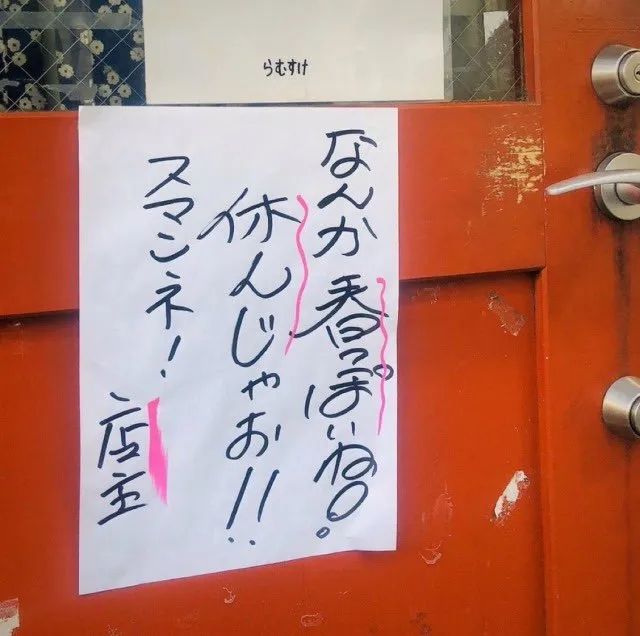 らむすけ
なんか春っぽいね。
休んじゃお!!
スマンネ!
店主